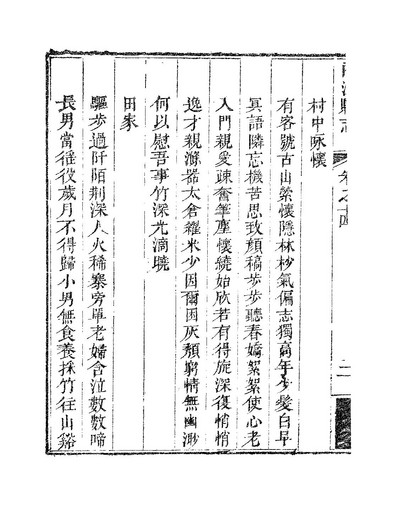 縣志 卷之十四 二
村中咏懷
有客號古山縈懷隱林杪氣偏志獨高年少髮白早
冥語隣忘機苦思致顏稿步步聽春嬌絮絮使心老
入門親愛疎奮筆塵懷繞始欣若有得旋深復悄悄
逸才親滌器太倉糴米少因爾困灰頹窮情無幽渺
何以慰吾事竹深光滴曉
田家
驅步過阡陌荆深人火稀寨旁單老婦含泣數數啼
長男當徭役歲月不得歸小男無食養採竹往山谿